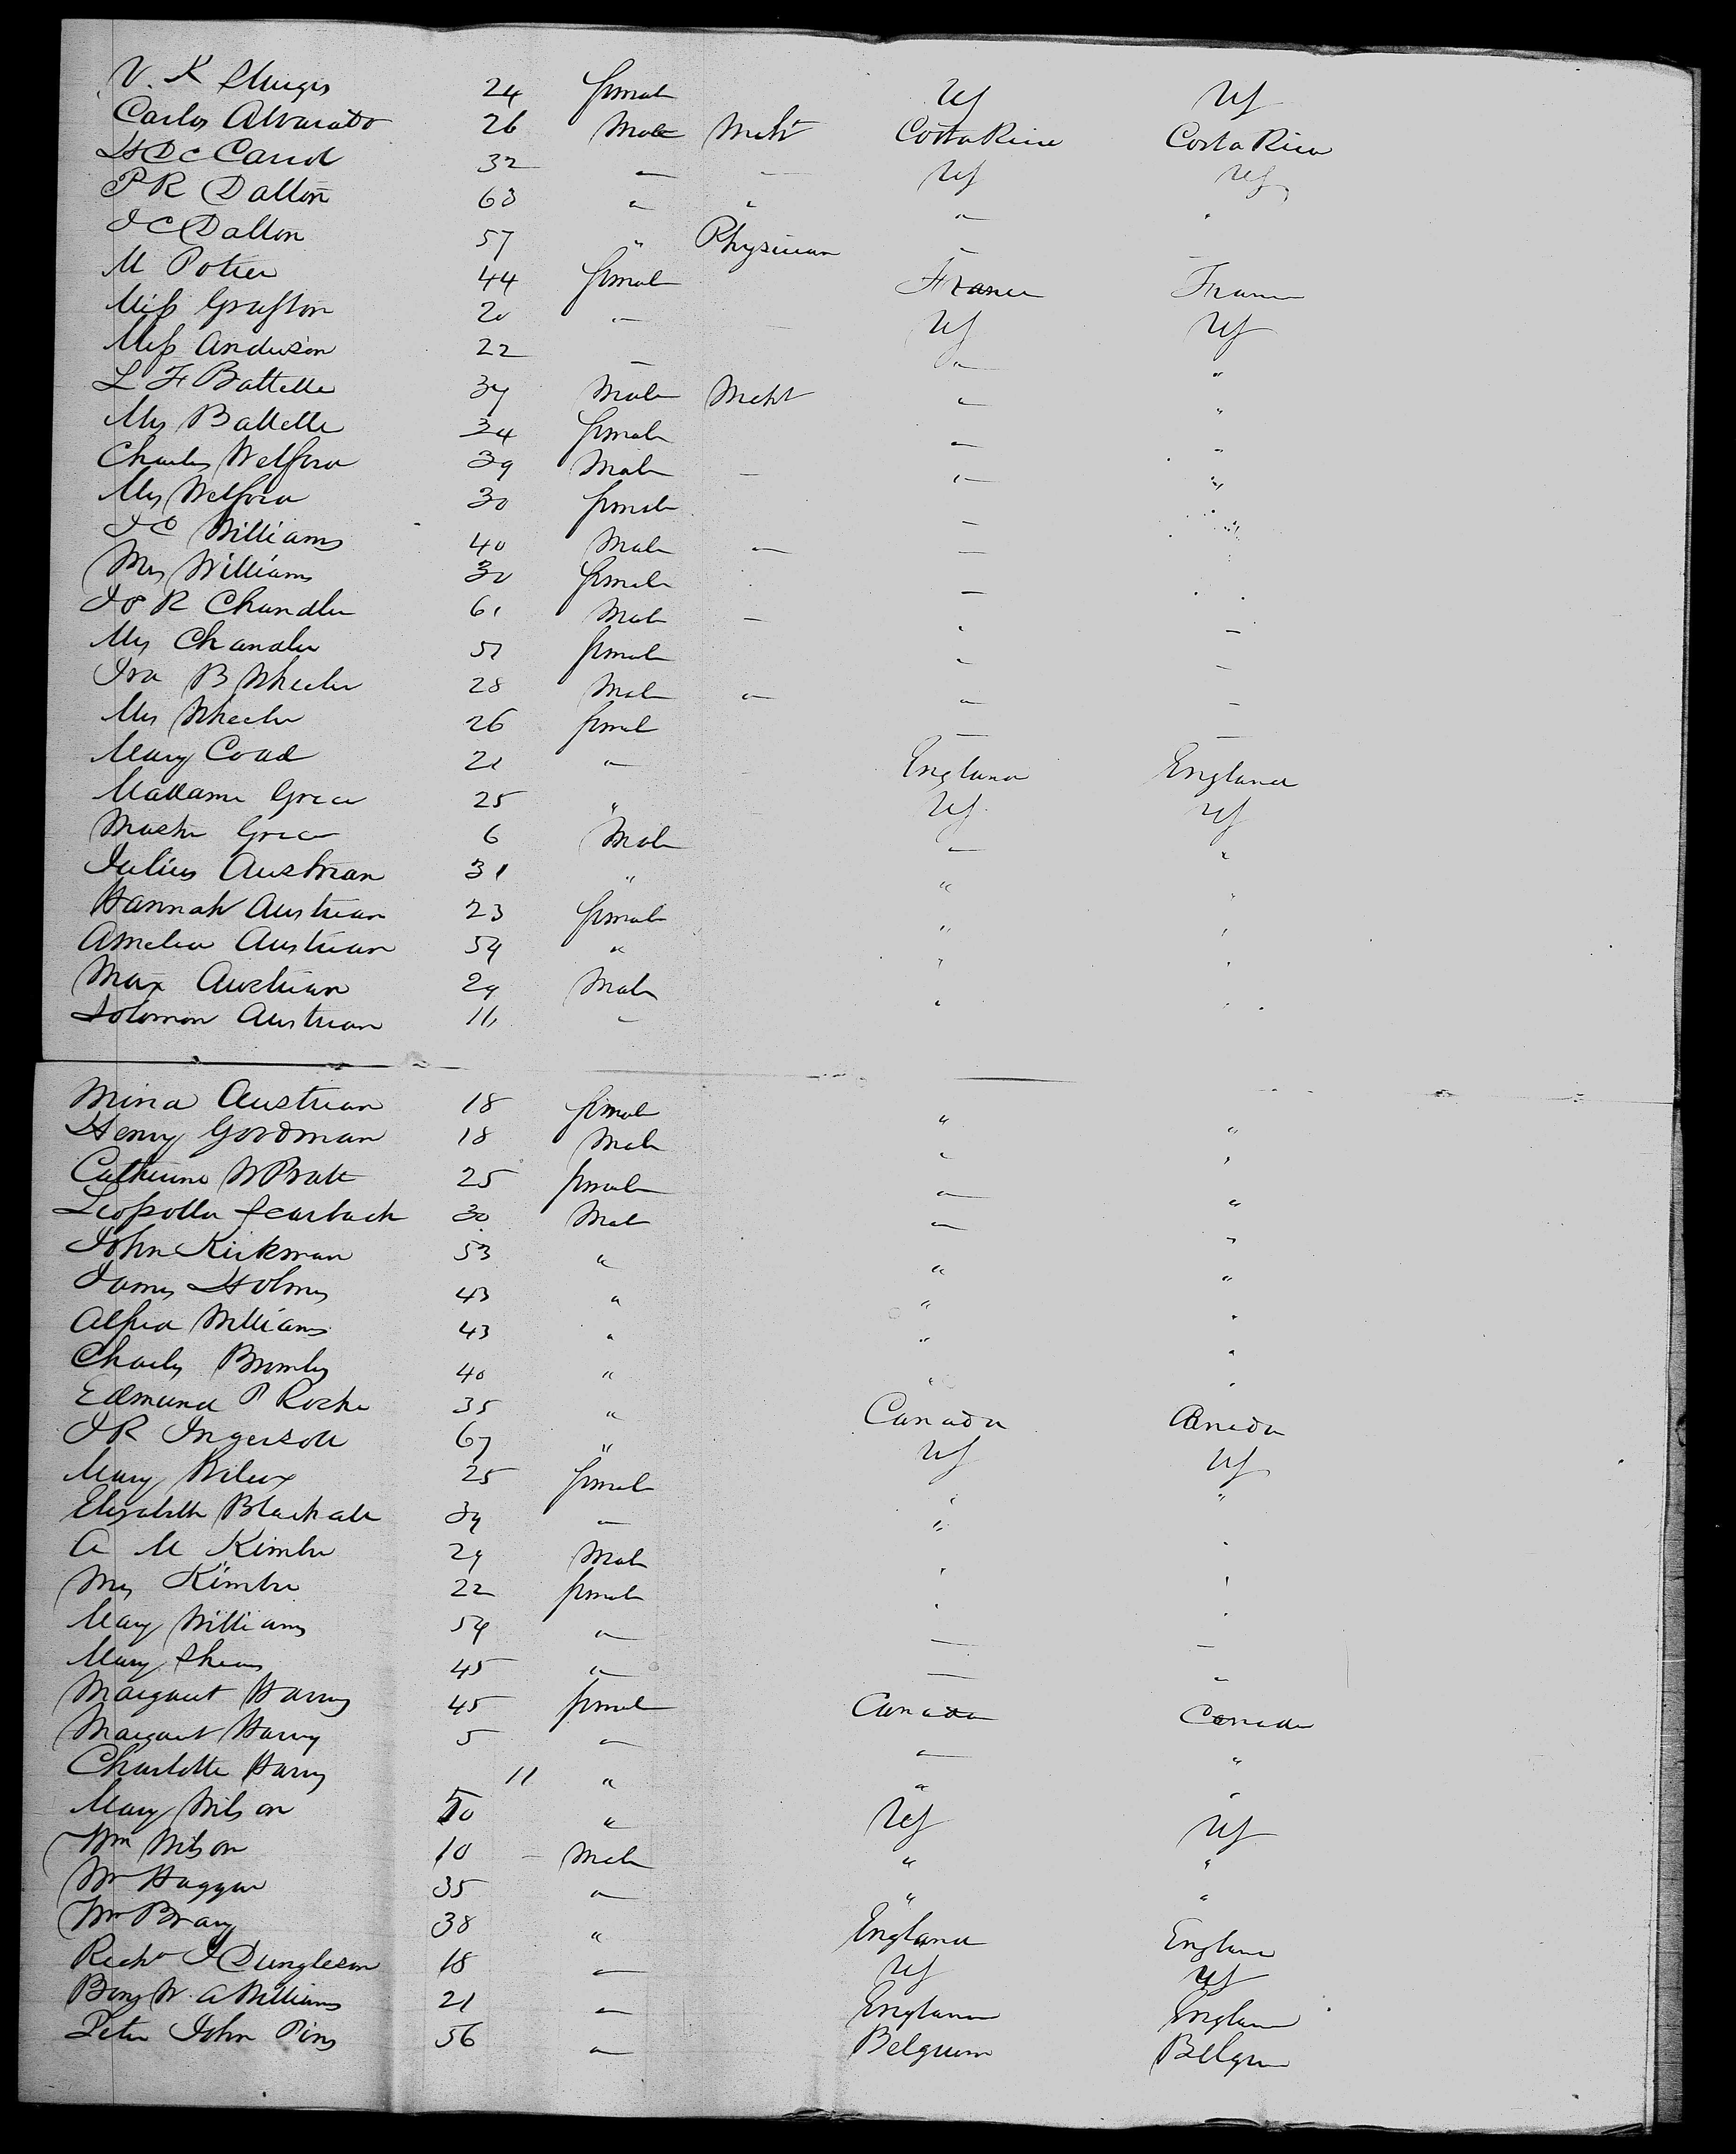 V. K Sturgis 24 female US US
Carlos Alvarado 26 Male Mcht Costa Rica Costa Rica
H De C 32 " " US US
P R Dalton 63 " " " "
J C Dalton 57 " Physician " "
M Potier 44 female France France
Miss Grafton 20 " US US
Miss Anderson 22 " " "
L F Battelle 37 Male Mcht " "
Mrs Battelle 34 female " "
Charles Welford 39 Male " " "
Mrs Welford 30 female " "
J C Williams 40 Male " "
Mrs Williams 30 female " "
R Chandler 61 Male " " "
Mrs Chandler 57 female " "
Ira B Wheeler 28 Male " " "
Mrs Wheeler 26 female " "
Mary Coad 21 " England England
Madame 25 " US US
Master 6 Male " "
Julius Austrian 31 " " "
Hannah Austrian 23 female " "
Amelia Austrian 54 " " "
Max Austrian 29 Male " "
Solomon Austrian 11 "
Mina Austrian 18 female " "
Henry Goodman 18 Male " "
Catherine W Pratt 25 female " "
30 Male " "
John Kirkman 53 " " "
James Holmes 43 " " "
Alfred Williams 43 " " "
Charles Bromley 40 " " "
Edmund P Roche 35 " Canada Canada
J R Ingersoll 67 " US US
Mary 25 female " "
Elizabeth 39 " "
A M Kimber 29 Male " "
Mrs Kimber 22 female " "
Mary Williams 54 " " "
Mary 45 " " "
Margaret Harvey 45 female Canada Canada
Margaret Harvey 5 " " "
Charlotte Harvey 11 " " "
Mary Wilson 50 " US US
Wm Wilson 10 Male " "
Mr Haggar 35 " " "
Mr Bray 38 " England England
Richd J Dunglison 18 " US US
Benj W. A Williams 21 " England England
Peter John 56 " Belgium Belgium